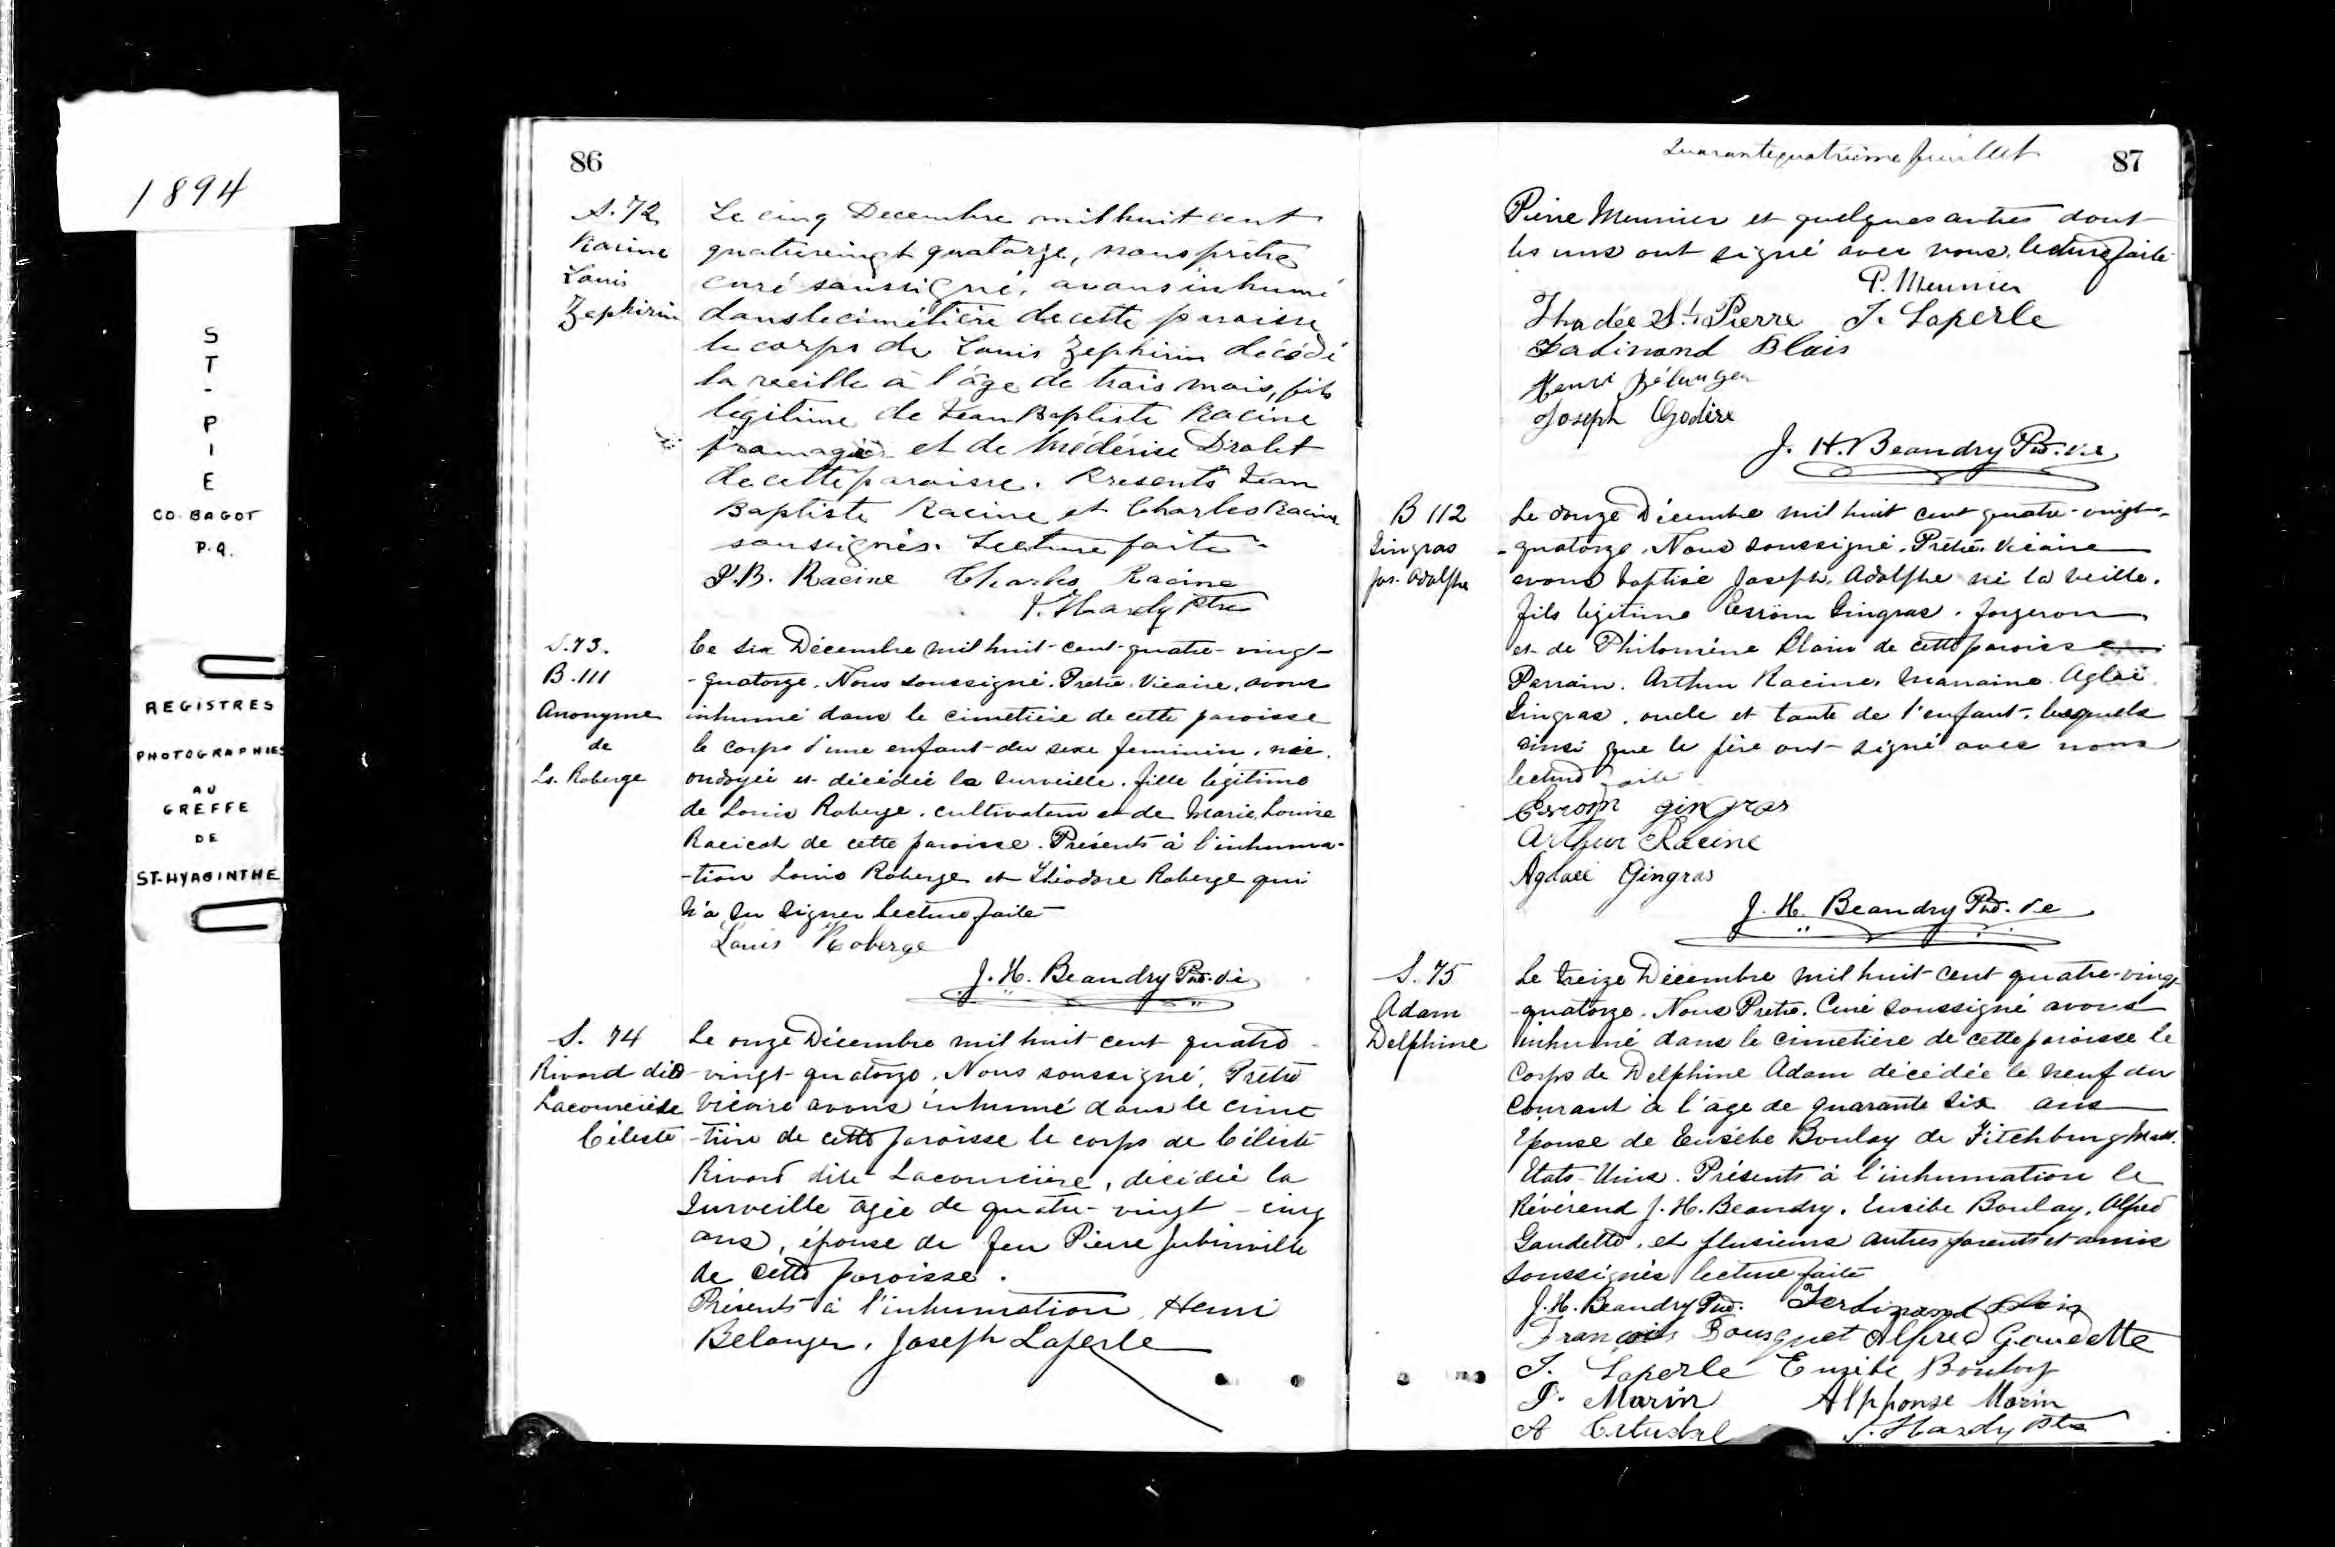 1894
ST-PIE
CO. BAGOT
P.Q.
REGISTRES
PHOTOGRAPHIES
AU
GREFFE
DE
ST-HYACINTHE
86
S. 72
Racine
Louis
Zephirin
Le cinq Decembre mil huit cent
quatrevingt quatorze, nous prêtre
curé soussigné, avons inhumé
dans le cimetière de cette paroisse
le corps de Louis Zephirin décédé
la veille à l'âge de trois mois, fils
légitime de Jean Baptiste Racine
fromager et de Médérise Drolet
de cette paroisse. Presents Jean
Baptiste Racine et Charles Racine
soussignés. Lecture faite.
J.B. Racine Charles Racine
J. Hardy Ptre
S. 73.
B. 111
Anonyme
de
Ls. Roberge
Le six Décembre mil huit-cent-quatre-vingt-
-quatorze. Nous soussigné. Prêtre. Vicaire, avons
inhumé dans le cimetière de cette paroisse
le corps d'une enfant du sexe feminin, née.
ondoyée et décédée la surveille. fille légitime
de Louis Roberge. cultivateur et de Marie Louise
Racicot de cette paroisse. Présents à l'inhuma-
-tion Louis Roberge et Théodore Roberge qui
n'a su signer lecture faite
Louis Roberge
J. H. Beaudry Ptre. vic
S. 74
Rivard dit
Lacoursière
Céleste
Le onze Décembre mil huit cent quatre
-vingt-quatorze. Nous soussigné, Prêtre
Vicaire avons inhumé dans le cime
-tière de cette paroisse le corps de Céleste
Rivard dite Lacoursière, décédée la
Surveille âgée de quatre-vingt-cinq
ans, épouse de feu Pierre Jubinville
de cette paroisse.
Présents à l'inhumation, Henri
Belanger, Joseph Laperle
Quarantequatrième feuillet
87
Pierre Meunier et quelques autres dont
les uns ont signé avec nous, lecture faite
P. Meunier
Thadée St Pierre J. Laperle
Ferdinand Blais
Henri Bélanger
Joseph Godère
J. H. Beaudry Ptre. vic
B 112
Gingras
Jos. Adolphe
Le douze Décembre mil huit cent quatre-vingt-
-quatorze. Nous soussigné. Prêtre. Vicaire
avons baptisé Joseph, Adolphe né la veille.
fils légitime Gingras. forgeron
et de Philomène Blain de cette paroisse
Parrain. Arthur Racine. Marraine. Aglaé
Gingras. oncle et tante de l'enfant, lesquels
ainsi que le père ont signé avec nous
lecture faite
gingras
Arthur Racine
Agdaee Gingras
J. H. Beaudry Ptre. vic
S. 75
Adam
Delphine
Le treize Décembre mil huit cent quatre-vingt
-quatorze. Nous Prêtre. Curé soussigné avons
inhumé dans le cimetière de cette paroisse le
Corps de Delphine Adam décédée le neuf du
Courant à l'âge de quarante six ans
Épouse de Eusèbe Boulay de Fitchburg Mass.
Etats-Unis. Présents à l'inhumation le
Révérend J. H. Beaudry. Eusèbe Boulay. Alfred
Gaudette. et plusieurs autres parents et amis
soussignés lecture faite
J. H. Beaudry Ptre. Ferdinand Blais
François Bousquet Alfred Gaudette
J. Laperle Eusèbe Boulay
P. Marin Alphonse Morin
A J. Hardy Ptre